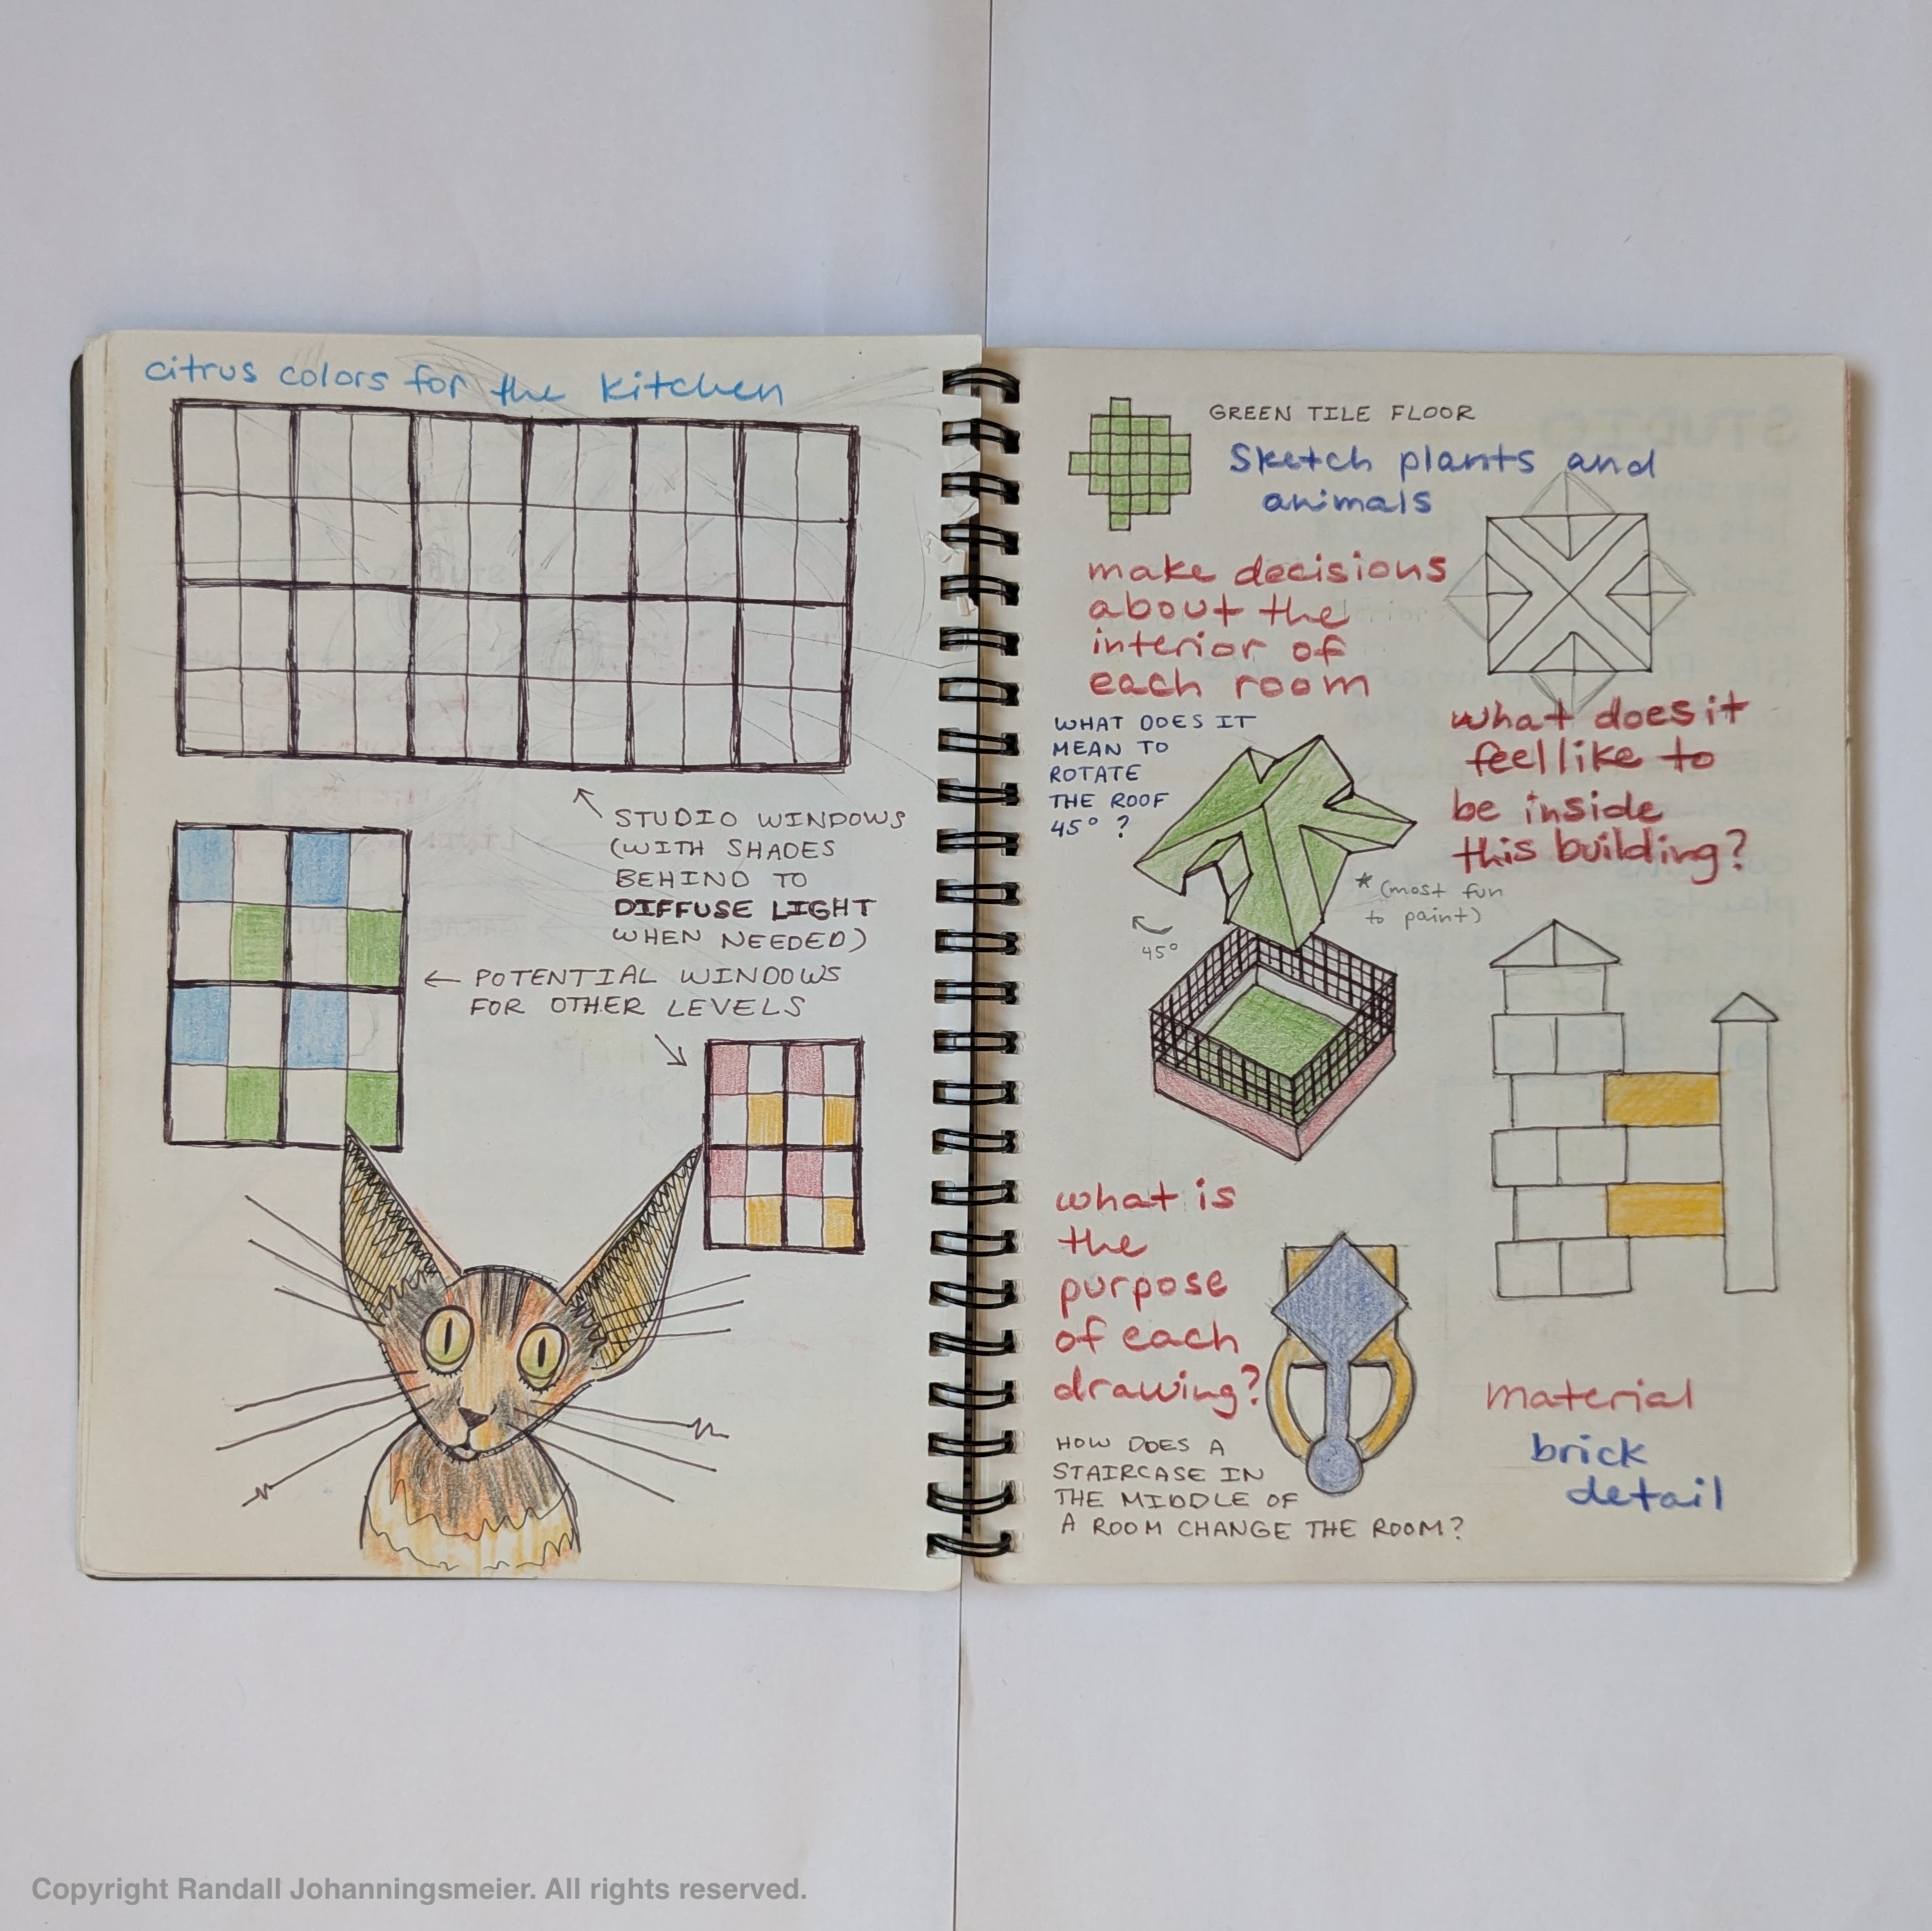 citrus colors for the kitchen
STUDIO WINDOWS
(WITH SHADES
BEHIND TO
DIFFUSE LIGHT
WHEN NEEDED)
← POTENTIAL WINDOWS
FOR OTHER LEVELS
GREEN TILE FLOOR
Sketch plants and
animals
make decisions
about the
interior of
each room
WHAT DOES IT
MEAN TO
ROTATE
THE ROOF
45° ?
what does it
feel like to
be inside
this building?
* (most fun
to paint)
45°
what is
the
purpose
of each
drawing?
HOW DOES A
STAIRCASE IN
THE MIDDLE OF
A ROOM CHANGE THE ROOM?
material
brick
detail
Copyright Randall Johanningsmeier. All rights reserved.